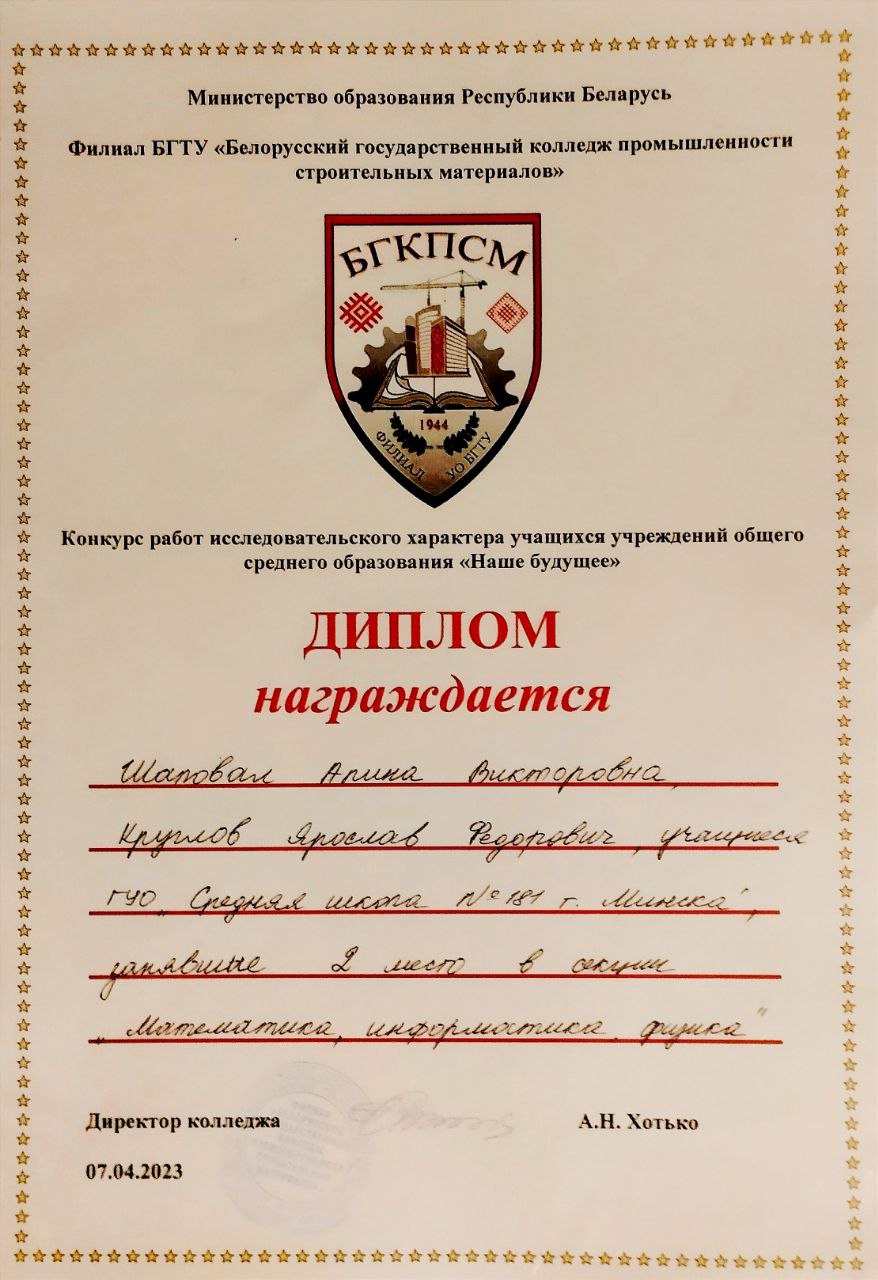 Министерство образования Республики Беларусь
Филиал БГТУ «Белорусский государственный колледж промышленности
строительных материалов»
БГКПСМ
1944
ФИЛИАЛ УО БГТУ
Конкурс работ исследовательского характера учащихся учреждений общего
среднего образования «Наше будущее»
ДИПЛОМ
награждается
Шаповал Алина Викторовна,
Круглов Ярослав Федорович, учащиеся
ГУО „Средняя школа №181 г. Минска",
занявшие 2 место в секции
„Математика, информатика, физика"
Директор колледжа А.Н. Хотько
07.04.2023